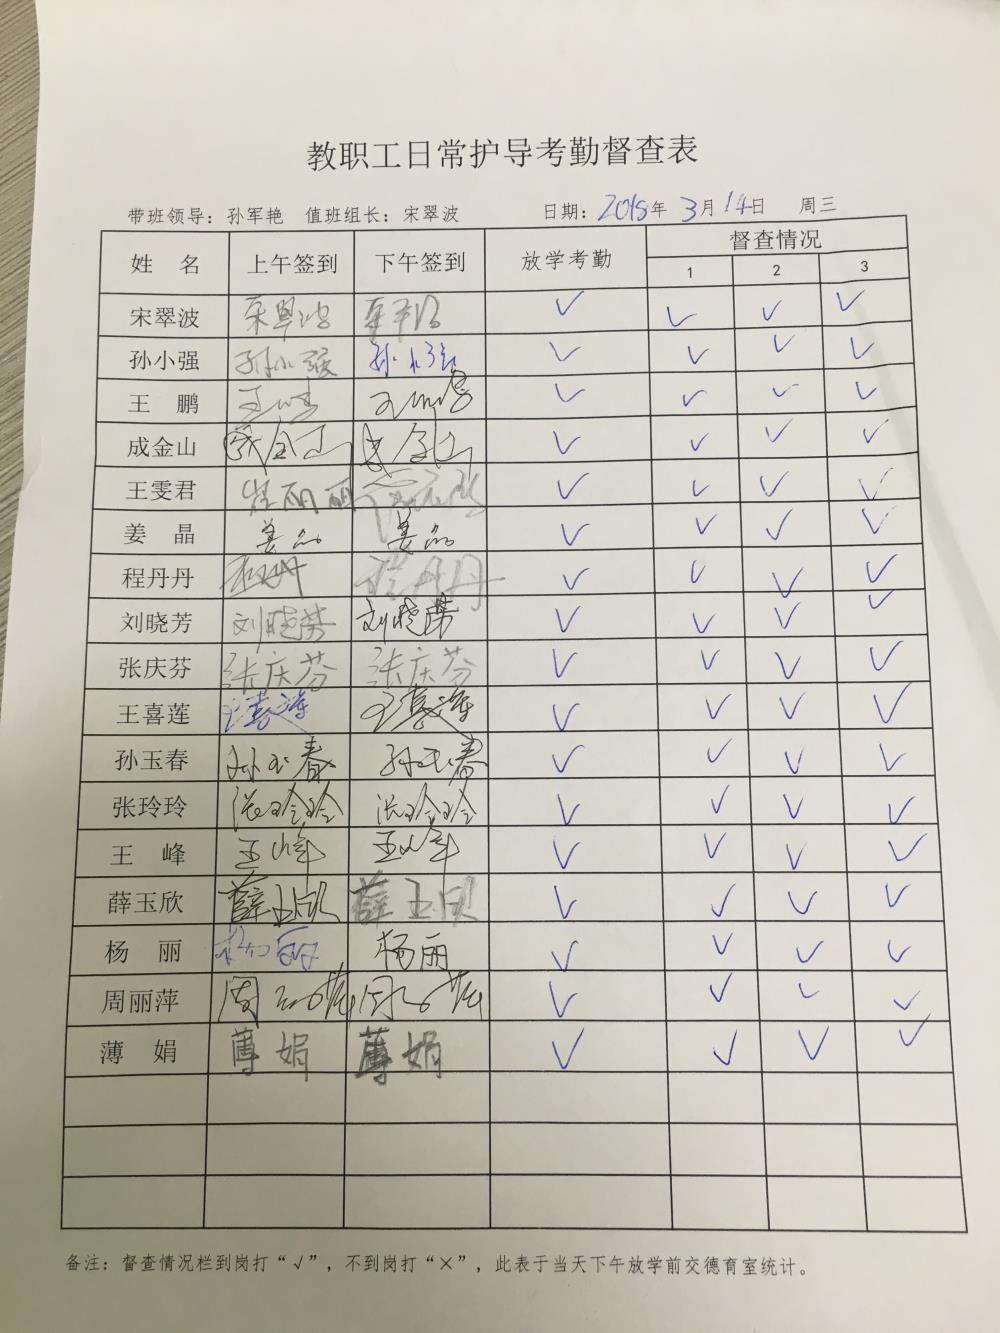 教职工日常护导考勤督查表
带班领导：孙军艳 值班组长：宋翠波 日期：2018年3月14日 周三
姓 名 上午签到 下午签到 放学考勤 督查情况
1 2 3
宋翠波 宋翠波 宋翠波 ✓ ✓ ✓ ✓
孙小强 孙小强 孙小强 ✓ ✓ ✓ ✓
王 鹏 王鹏 王鹏 ✓ ✓ ✓ ✓
成金山 成金山 成金山 ✓ ✓ ✓ ✓
王雯君 ✓ ✓ ✓ ✓
姜 晶 姜晶 姜晶 ✓ ✓ ✓ ✓
程丹丹 程丹丹 程丹丹 ✓ ✓ ✓ ✓
刘晓芳 刘晓芳 刘晓芳 ✓ ✓ ✓ ✓
张庆芬 张庆芬 张庆芬 ✓ ✓ ✓ ✓
王喜莲 王喜莲 王喜莲 ✓ ✓ ✓ ✓
孙玉春 孙玉春 孙玉春 ✓ ✓ ✓ ✓
张玲玲 张玲玲 张玲玲 ✓ ✓ ✓ ✓
王 峰 王峰 王峰 ✓ ✓ ✓ ✓
薛玉欣 薛玉欣 薛玉欣 ✓ ✓ ✓ ✓
杨 丽 杨丽 杨丽 ✓ ✓ ✓ ✓
周丽萍 周丽萍 周丽萍 ✓ ✓ ✓ ✓
薄 娟 薄娟 薄娟 ✓ ✓ ✓ ✓
备注：督查情况栏到岗打“√”，不到岗打“×”，此表于当天下午放学前交德育室统计。